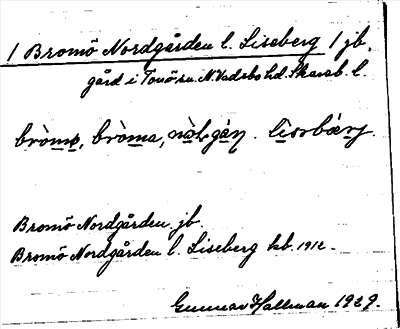 1 Bromö Nordgården l. Liseberg 1 jb.
gård i Torsö sn N. Vadsbo hd. Skarab. l.
bròmø, bròma, nòlgàṇ. lìsrbærj.
Bromö Nordgården jb
Bromö Nordgården l. Liseberg kb. 1912.
Gunnar Hallman 1929.